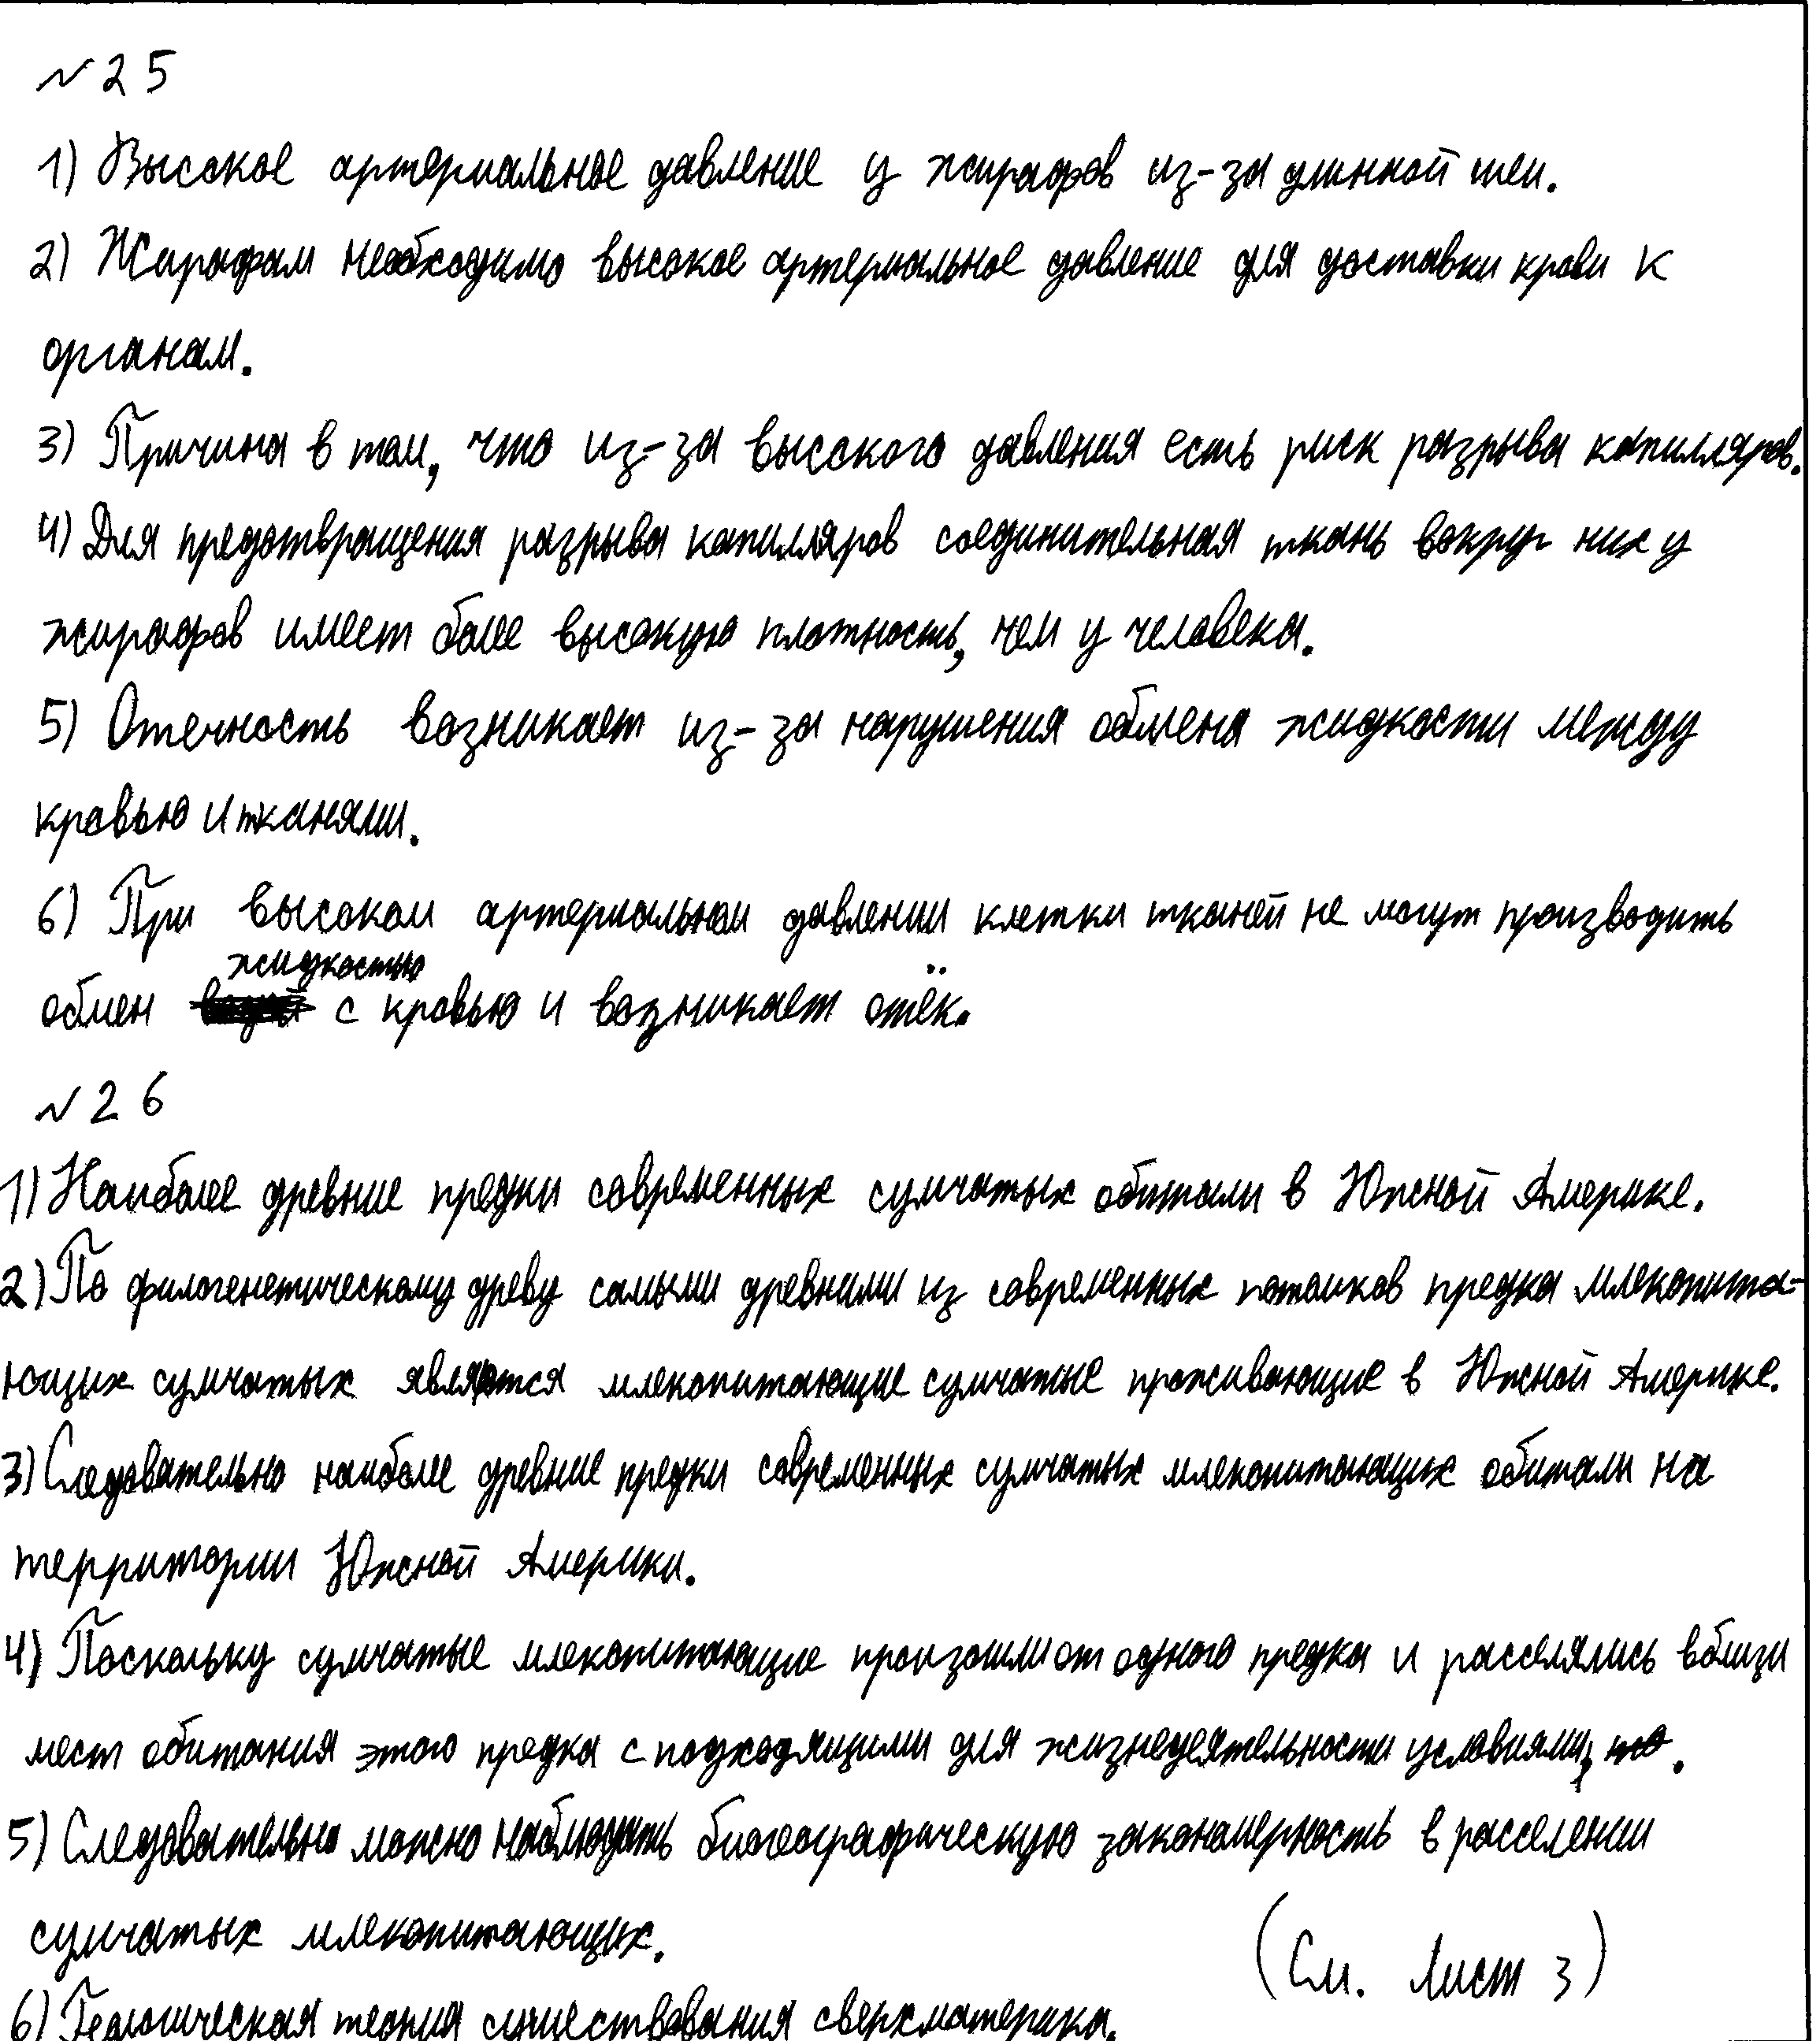 №25
1) Высокое артериальное давление у жирафов из-за длинной шеи.
2) Жирафам необходимо высокое артериальное давление для доставки крови к
органам.
3) Причина в том, что из-за высокого давления есть риск разрыва капилляров.
4) Для предотвращения разрыва капилляров соединительная ткань вокруг них у
жирафов имеет более высокую плотность, чем у человека.
5) Отечность возникает из-за нарушения обмена жидкости между
кровью и тканями.
6) При высоком артериальном давлении клетки тканей не могут производить
обмен жидкостью с кровью и возникает отёк.
№26
1) Наиболее древние предки современных сумчатых обитали в Южной Америке.
2) По филогенетическому древу самыми древними из современных потомков предка млекопита-
ющих сумчатых являются млекопитающие сумчатые проживающие в Южной Америке.
3) Следовательно наиболее древние предки современных сумчатых млекопитающих обитали на
территории Южной Америки.
4) Поскольку сумчатые млекопитающие произошли от одного предка и расселялись вблизи
мест обитания этого предка с подходящими для жизнедеятельности условиями, то.
5) Следовательно можно наблюдать биогеографическую закономерность в расселении
сумчатых млекопитающих.
(См. Лист 3)
6) Геологическая теория существования сверхматерика.